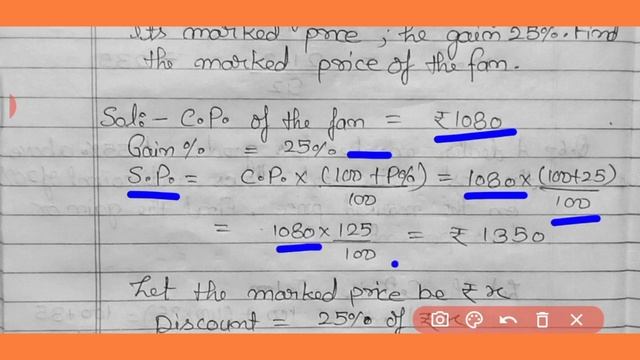 its marked price, he gain 25%. Find
the marked price of the fan.
Sol:- C.P. of the fan = ₹1080
Gain % = 25%
S.P. = C.P. × (100 + P%)/100 = 1080 × (100+25)/100
= 1080 × 125/100 = ₹ 1350
Let the marked price be ₹ x
Discount = 25% of ₹ x